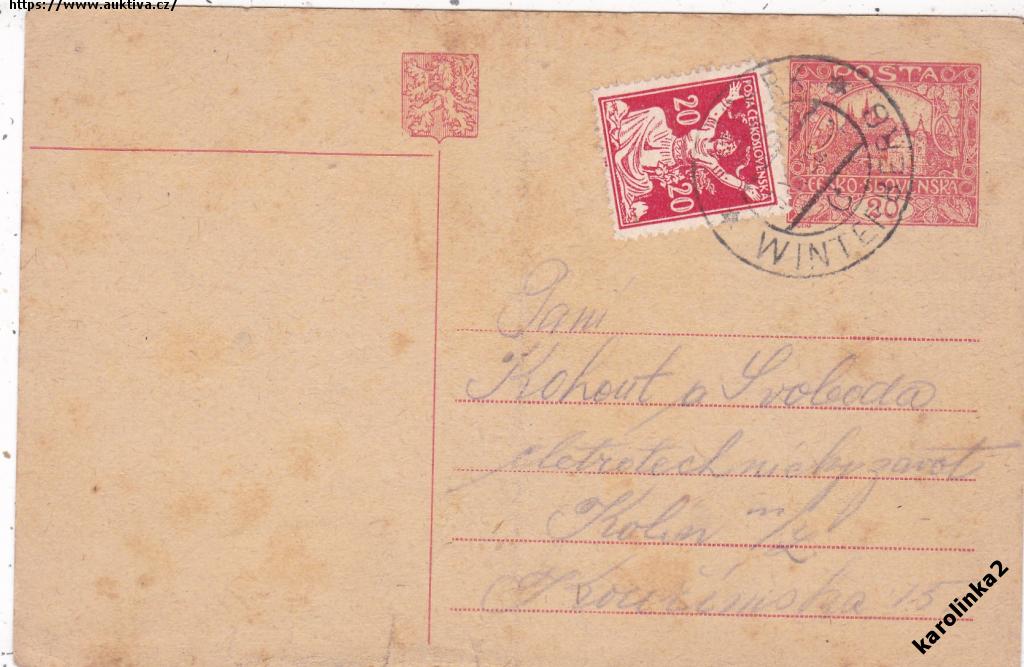 https://www.auktiva.cz/
POŠTA ČESKOSLOVENSKÁ
20
20
POSTA
ČESKO-SLOVENSKÁ
20
WINTERBERG
Pani
Kohout a Svoboda
eletrotechnicky zavot
Kolin n/L
Kouřimska 15
karolinka2